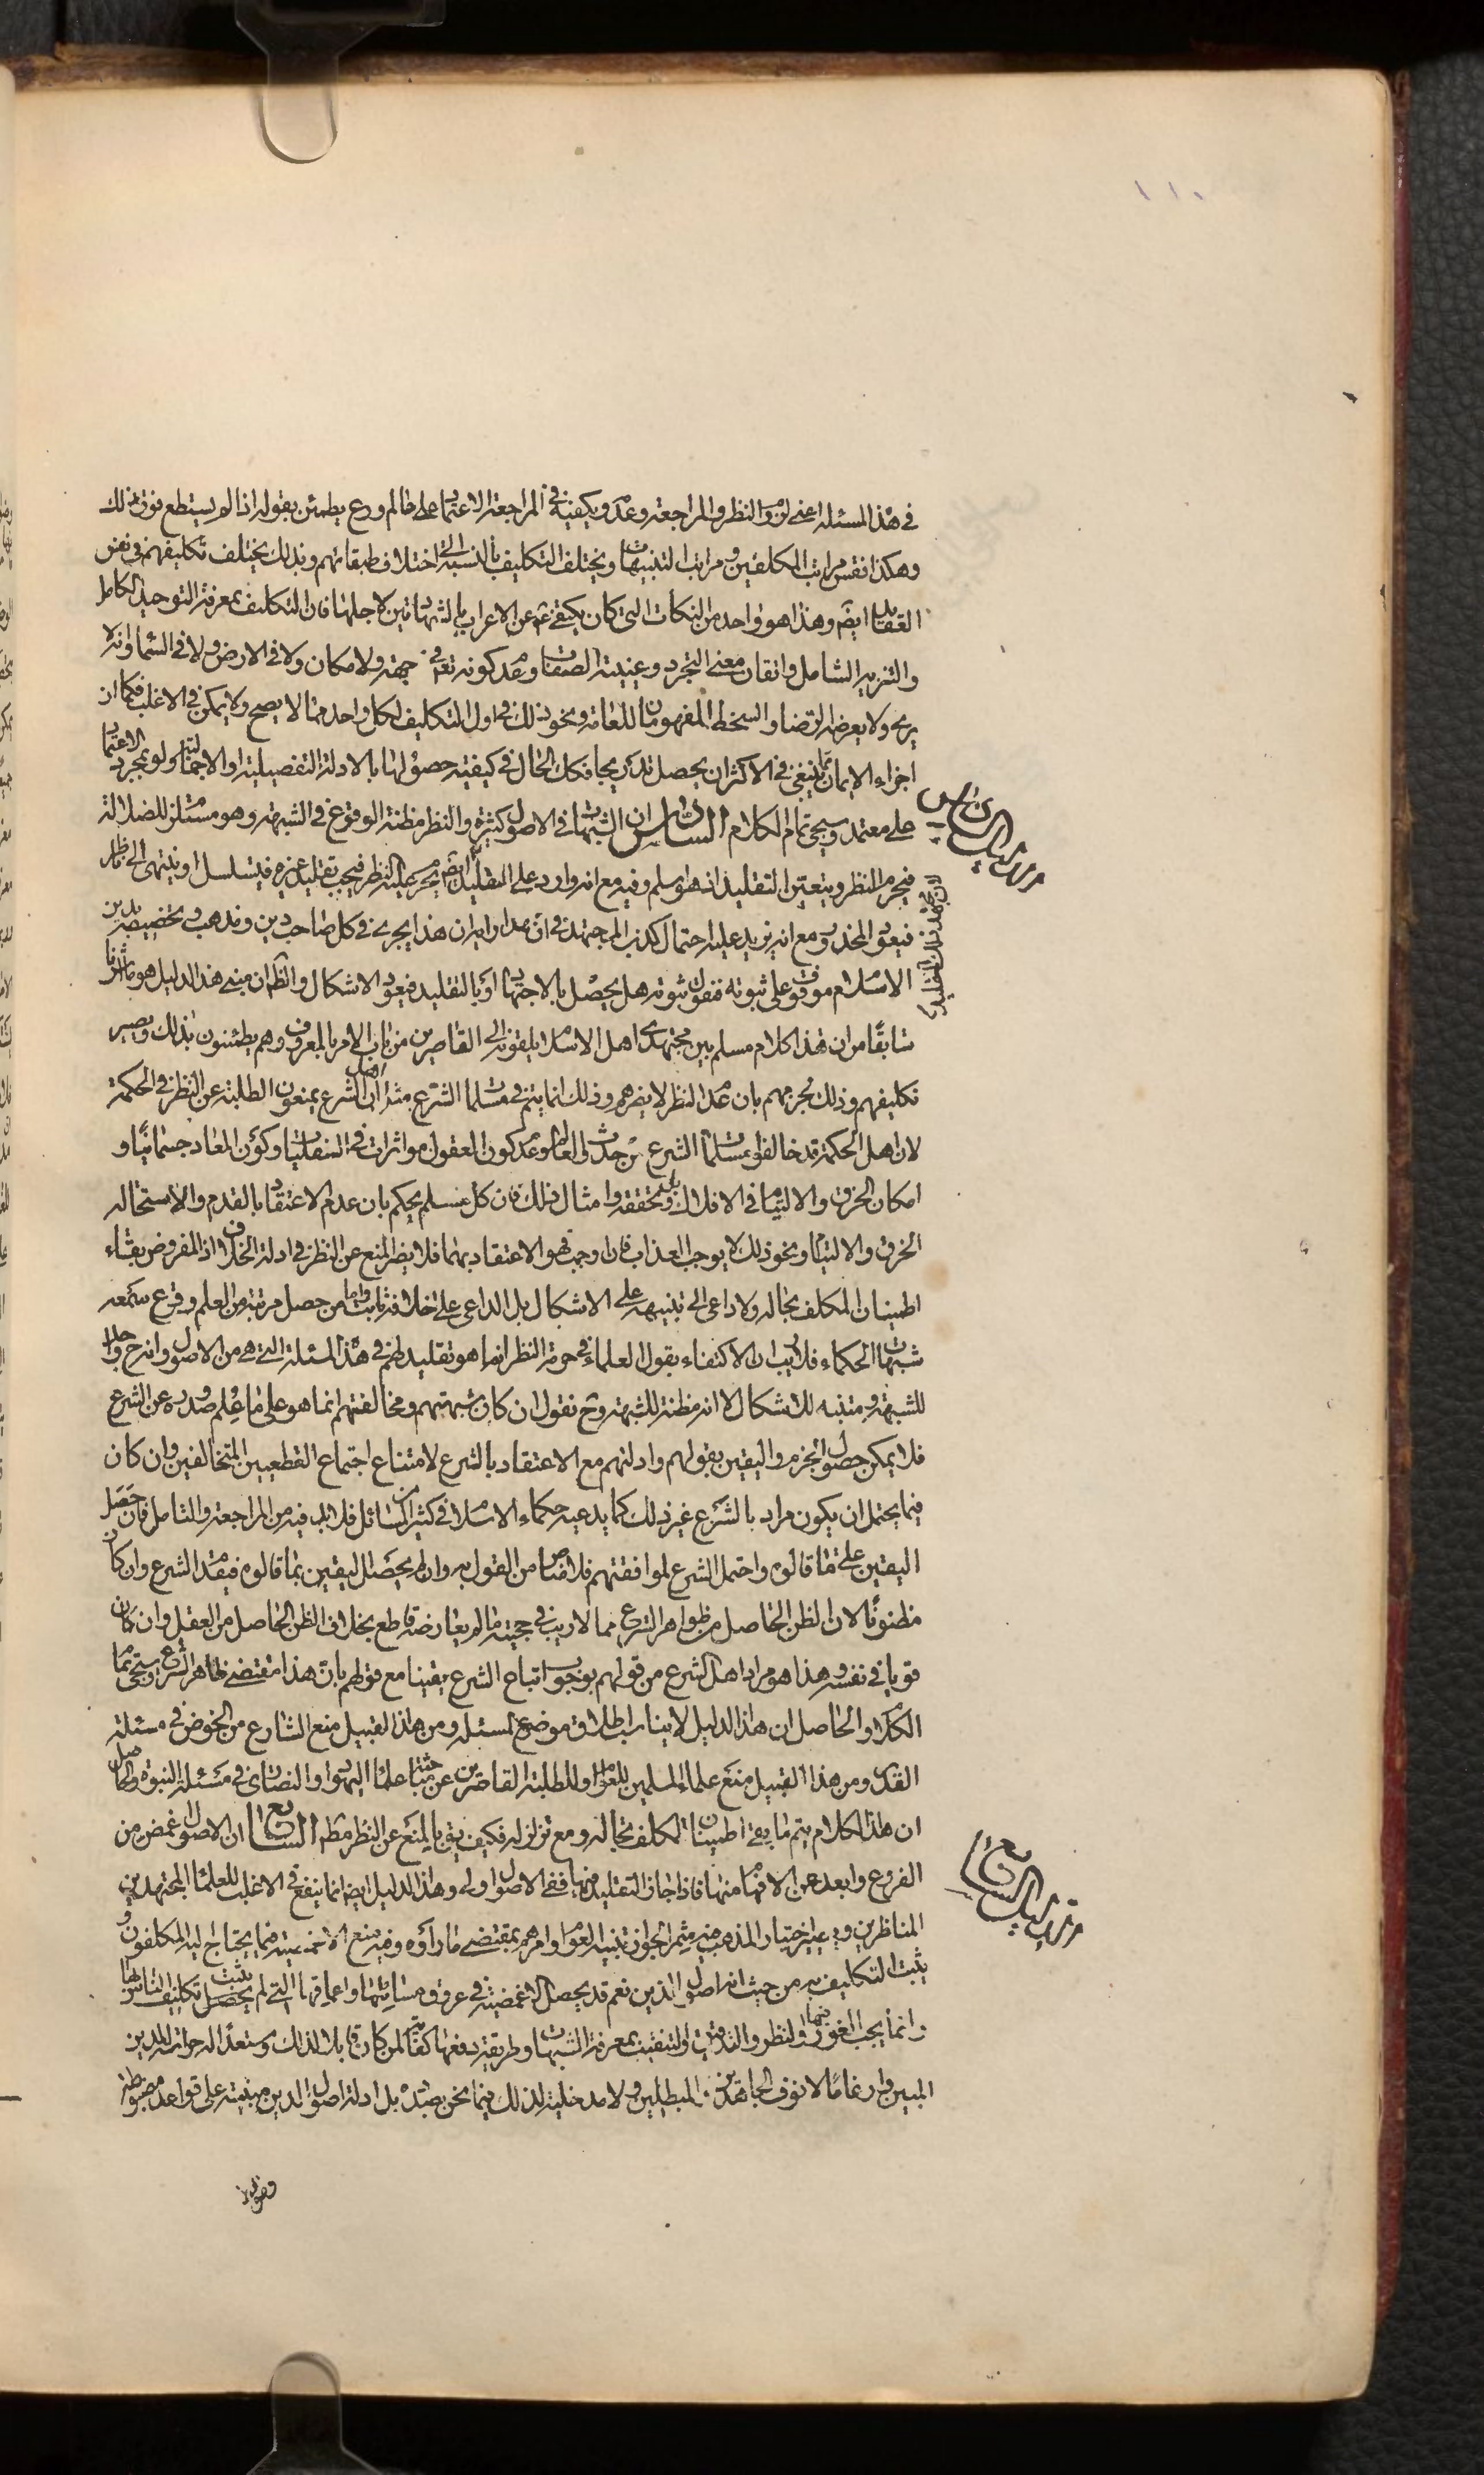 ١١٠
في هذا المسئلة اعنى لزوم النظر والمراجعة وعدمه ويكفيه في المراجعة الاعتماد على عالم ورع يطمئن بقوله اذا لم يستطع فوق ذلك
وهكذا نفس مراتب المكلفين ومراتب التنبيهات ويختلف التكليف بالنسبة الى اختلاف طبقاتهم وبذلك يختلف تكليفهم في نفس
العقايد ايضا وهذا هو واحد من النكات التي كان يكتفى عن الاعراب بالشهادتين لاجلها فان التكليف بمعرفة التوحيد الكامل
والتنزيه الشامل واتقان معنى التجرد وعينية الصفات وعدم كونه تعالى في جهة ولا مكان ولا في الارض ولا في السماء وانه لا
يرى ولا يعرضه الرضا والسخط المفهومان للعامة ونحو ذلك في اول التكليف لكل واحد مما لا يصح ولا يمكن في الاغلب فكما ان
اجزاء الايمان ينبغي في الاكثر ان يحصل تدريجا فكك الحال في كيفية حصولها بالادلة التفصيلية او الاجمالية ولو بمجرد الاعتماد
على معتمد وسيجئ تمام الكلام السادس ان الشبهات في الاصول كثيرة والنظر مظنة الوقوع في الشبهة وهو مستلزم للضلالة
فيحرم النظر ويتعين التقليد اذ هو اسلم وفيه مع انه وارد على المقلد ايضا يحرم عليه النظر فيجب تقليد غيره فيتسلسل او ينتهى الى ناظر
فيعود المحذور مع انه يزيد عليه احتمال كذب المجتهد في ان هذا يجرى في كل صاحب دين ومذهب وتخصيصه بدين
الاسلام موقوف على ثبوته فنقول ثبوته هل يحصل بالاجتهاد او بالتقليد فيعود الاشكال والظ ان مبنى هذا الدليل هو ما اشرنا
سابقا من ان هذا كلام مسلم بين مجتهدى اهل الاسلام يلقونه الى القاصرين من باب الامر بالمعروف وهم يطمئنون بذلك ويصير
تكليفهم وذلك لجزمهم بان عدم النظر لا يضرهم وذلك انما يتم في مسلمات الشرع مثلا اهل الشرع يمنعون الطلبة عن النظر في الحكمة
لان اهل الحكمة قد خالفوا مسلمات الشرع من حدوث العالم وعدم كون العقول مؤثرات في السفليات وكون المعاد جسمانيا و
امكان الخرق والالتيام في الافلاك بل وتحققه وامثال ذلك فان كل مسلم يحكم بان عدم الاعتقاد بالقدم والاستحالة
الخرق والالتيام ونحو ذلك لا يوجب العذاب فان اوجب فهو الاعتقاد بهما فلا يضر المنع عن النظر في ادلة الخلاف اذ المفروض بقاء
اطمينان المكلف بحاله ولا داعى الى تنبيهه على الاشكال بل الداعى على خلافه ثابت واما من حصل مرتبة من العلم وقرع سمعه
شبهات الحكماء فلا ريب ان الاكتفاء بقول العلماء في حرمة النظر انما هو تقليد لهم في هذا المسئلة التي هي من الاصول وانه ح واجد
للشبهة ومتنبه للاشكال لا انه مظنة للشبهة وح نقول ان كان شبهتهم ومخالفتهم انما هو على ما علم صدوره عن الشرع
فلا يمكن حصول الجزم واليقين بقولهم وادلتهم مع الاعتقاد بالشرع لامتناع اجتماع القطعيين المتخالفين وان كان
فيما يحتمل ان يكون مراد بالشرع غير ذلك كما يدعيه حكماء الاسلام في كثير من المسائل فلا بد فيه من المراجعة والتامل فان حصل
اليقين على ما قالوه واحتمل الشرع لموافقتهم فلا مناص من القول به وان لم يحصل اليقين بما قالوه فيقدم الشرع وان كان
مظنونا لان الظن الحاصل من ظواهر الشرع مما لا ريب في حجيته ما لم يعارضه قاطع بخلاف الظن الحاصل من العقل وان كان
قويا في نفسه وهذا هو مراد اهل الشرع من قولهم بوجوب اتباع الشرع يقينا مع قولهم بان هذا مقتضى ظاهر الشرع وسيجئ تمام
الكلام والحاصل ان هذا الدليل لا يناسب اطلاق موضع المسئلة ومن هذا القبيل منع الشارع من الخوض في مسئلة
القدر ومن هذا القبيل منع علماء المسلمين للعوام او للطلبة القاصرين عن مباحثة علماء اليهود والنصارى في مسئلة النبوة والحاصل
ان هذا الكلام يتم ما بقى اطمينان المكلف بحاله ومع تزلزله فكيف يقبل المنع عن النظر مطلقا السابع ان الاصول اغمض من
الفروع وابعد عن الافهام منها فاذا جاز التقليد فيها ففى الاصول اولى وهذا الدليل ايضا انما ينفع في الاغلب للعلماء المجتهدين
المناظرين في اختيار المذهب فيثمر لجواز تنبيه العوام وامرهم بمقتضى ما راوه وفيه منع الاغمضية فيما يحتاج اليه المكلفون و
يثبت التكليف به من حيث انه اصول الدين نعم قد يحصل الاغمضية في عروق مسائلها واعماقها التي لم يثبت تكليف الناس بها
وانما يجب الغور فيها والنظر والتدقيق والتفتيش بمعرفة الشبهات وطريقة دفعها كفاية لمن كان قابلا لذلك ومستعدا له حراسة للدين
المبين وارغاما لانوف الجاحدين المبطلين ولا مدخلية لذلك فيما نحن بصدده بل ادلة اصول الدين مبتنية على قواعد مضبوطة
الدليل السادس
الدليل السابع